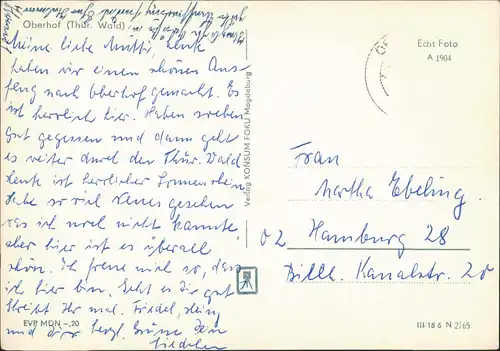 Oberhof (Thür. Wald)
Meine liebe Mutti, heute
haben wir einen schönen Aus-
flug nach Oberhof gemacht. Es
ist herrlich hier. Haben soeben
gut gegessen und dann geht
es weiter durch den Thür. Wald
heute ist herrlicher Sonnenschein
Habe so viel Neues gesehen
was ich noch nicht kannte,
aber hier ist es überall
schön. Ich freue mich so, dass
ich hier bin. Geht es dir gut
Schreibt Ihr mal. Friedel,
und dir herzl. Grüße Dein
EVP MDN -,20
Verlag KONSUM FOKU Magdeburg
Echt Foto
A 1904
Frau
Martha Ebeling
02 Hamburg 28
Billh. Kanalstr. 20
III 18 6 N 2/65